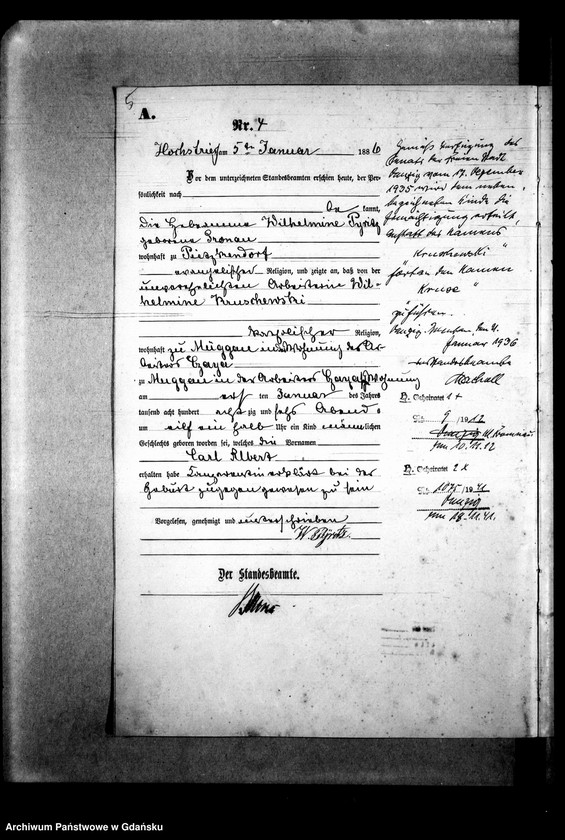 5
A.
Nr. 4
Hochstrieß am 5ten Januar 1886
Vor dem unterzeichneten Standesbeamten erschien heute, der Per-
sönlichkeit nach
kannt,
die Hebamme Wilhelmine Pyritz
geborene Gronau
wohnhaft zu Pietzkendorf
evangelischer Religion, und zeigte an, daß von der
unverehelichten Arbeiterin Wil-
helmine Kruschewski
katholischer Religion,
wohnhaft zu Müggau in der Wohnung des Ar-
beiters
zu Müggau in der Arbeiters Wohnung
am ersten Januar des Jahres
tausend acht hundert achtzig und sechs Abends
um eilf ein halb Uhr ein Kind männlichen
Geschlechts geboren worden sei, welches die Vornamen
Carl Albert
erhalten habe erklärt bei der
Geburt zugegen gewesen zu sein
Vorgelesen, genehmigt und unterschrieben
W. Pyritz.
Der Standesbeamte.
Gemäß Verfügung des
Senats der freien Stadt
Danzig vom 17. Dezember
1935 wird dem neben-
bezeichneten Kinde die
Ermächtigung erteilt,
anstatt des Namens
"Kruschewski"
fortan den Namen
"Kruse"
zu führen.
Danzig- den 21.
Januar 1936
Der Standesbeamte
H. Geheiratet 1 x
9/1912
am 10.11.12
H. Geheiratet 2 x
1075/1941
Danzig
am 18.11.41.
Archiwum Państwowe w Gdańsku